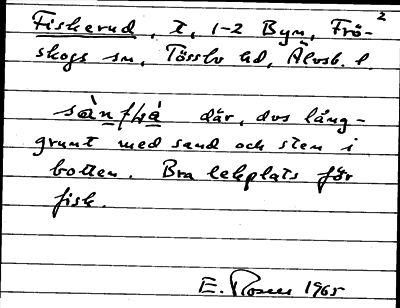 2
Fiskerud, t, 1-2 Byn, Frö-
skogs sn, Tössbo hd, Älvsb. l.
där, dvs lång-
grunt med sand och sten i
botten. Bra lekplats för
fisk.
E. Rosen 1965